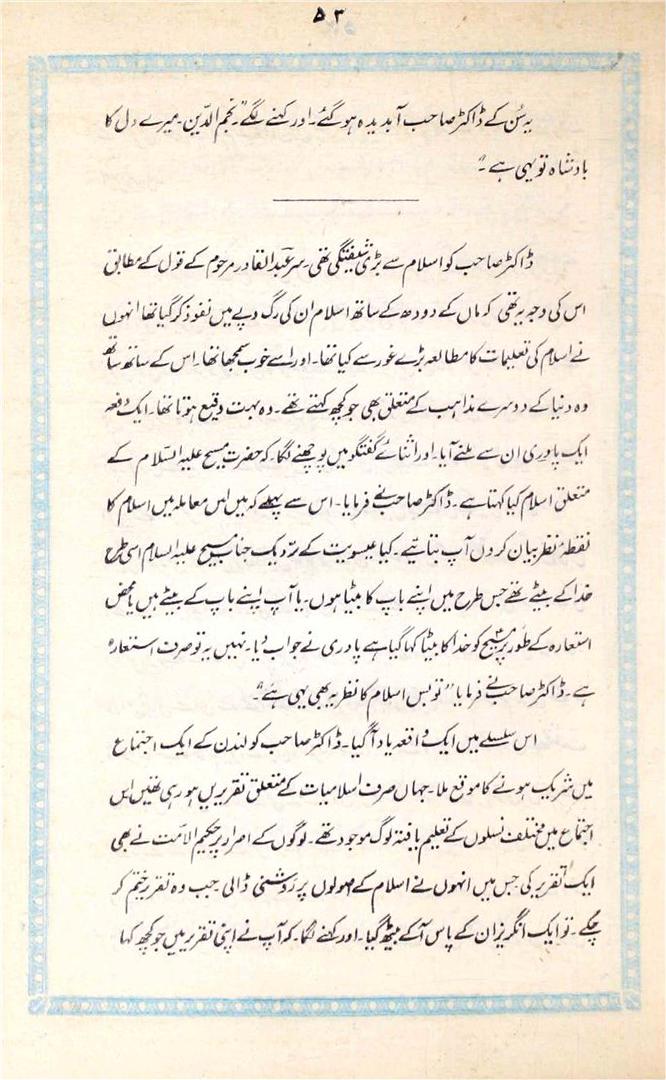 ۵۳
یہ سُن کے ڈاکٹر صاحب آبدیدہ ہوگئے۔ اور کہنے لگے "۔ نجم الدّین۔ میرے دل کا
بادشاہ تو یہی ہے ۔"
ڈاکٹر صاحب کو اسلام سے بڑی شیفتگی تھی۔ سر عبدالقادر مرحوم کے قول کے مطابق
اس کی وجہ یہ تھی کہ ماں کے دودھ کے ساتھ اسلام ان کی رگ و پے میں نفوذ کر گیا تھا انہوں
نے اسلام کی تعلیمات کا مطالعہ بڑے غور سے کیا تھا۔ اور اسے خوب سمجھا تھا۔ اس کے ساتھ ساتھ
وہ دنیا کے دوسرے مذاہب کے متعلق بھی جو کچھ کہتے تھے۔ وہ بہت وقیع ہوتا تھا۔ ایک دفعہ
ایک پادری ان سے ملنے آیا۔ اور اثنائے گفتگو میں پوچھنے لگا۔ کہ حضرت مسیح علیہ السّلام کے
متعلق اسلام کیا کہتا ہے۔ ڈاکٹر صاحب نے فرمایا۔ اس سے پہلے کہ میں اس معاملہ میں اسلام کا
نقطۂ نظر بیان کروں آپ بتائیے۔ کیا عیسویت کے نزدیک جناب مسیح علیہ السلام اسی طرح
خدا کے بیٹے تھے جس طرح میں اپنے باپ کا بیٹا ہوں۔ یا آپ اپنے باپ کے بیٹے ہیں یا محض
استعارہ کے طور پر مسیح کو خدا کا بیٹا کہا گیا ہے پادری نے جواب دیا۔ نہیں یہ تو صرف استعارہ
ہے۔ ڈاکٹر صاحب نے فرمایا "تو بس اسلام کا نظریہ بھی یہی ہے"۔
اس سلسلے میں ایک واقعہ یاد آگیا۔ ڈاکٹر صاحب کو لندن کے ایک اجتماع
میں شریک ہونے کا موقع ملا۔ جہاں صرف اسلامیات کے متعلق تقریریں ہو رہی تھیں اس
اجتماع میں مختلف نسلوں کے تعلیم یافتہ لوگ موجود تھے۔ لوگوں کے اصرار پر حکیم الامّت نے بھی
ایک تقریر کی جس میں انہوں نے اسلام کے اصولوں پر روشنی ڈالی جب وہ تقریر ختم کر
چکے۔ تو ایک انگریز ان کے پاس آ کے بیٹھ گیا۔ اور کہنے لگا۔ کہ آپ نے اپنی تقریر میں جو کچھ کہا